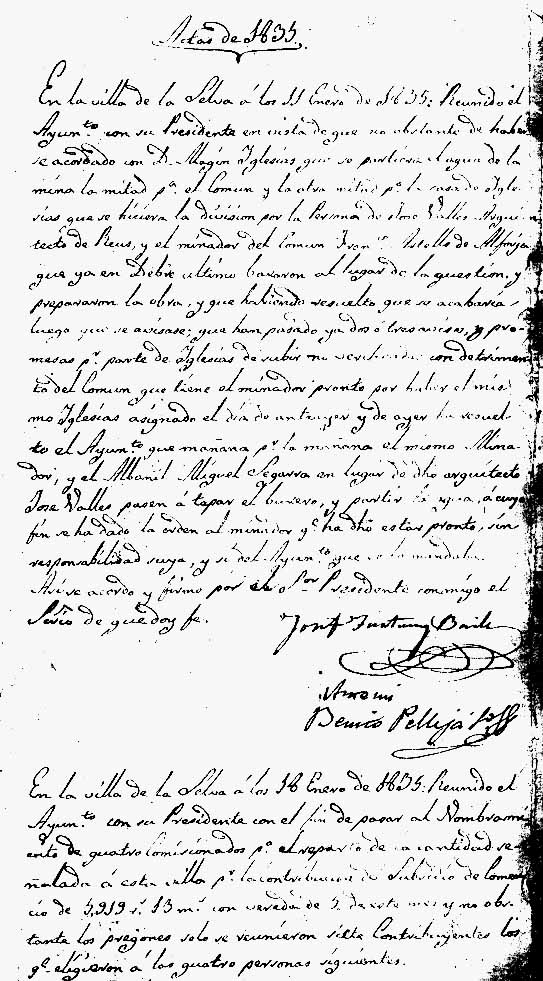 Actas de 1835.
En la villa de la Selva á los 11 Enero de 1835: Reunido el
Ayunto con su Presidente en vista de que no obstante de haber
se acordado con D. Magin Iglesias que se partiera el agua de la
mina la mitad pa el Comun y la otra mitad pa la casa de Igle-
sias que se hiciera la division por la Persona de Jose Valles Arqui
tecto de Reus, y el minador del Comun Franco de Alforja
que ya en Debre ultimo baxaron al lugar de la question, y
prepararon la obra, y que habiendo resuelto que se acabaria
luego que se avisase; que han pasado ya dos ó tres avisos, y pro-
mesas pr parte de Iglesias de subir no verificadas con detrimen
to del Comun que tiene el minador pronto por haber el mis-
mo Iglesias asignado el dia de anteayer y de ayer ha resuel-
to el Ayunto que mañana pr la mañana el mismo Mina-
dor, y el Albañil Miguel Segarra en lugar de dho arquitecto
Jose Valles pasen á tapar el y partir el agua, á cuyo
fin se ha dado la orden al minador qe ha dho estar pronto, sin
responsabilidad suya, y si del Ayunto que se lo manda.
Asi se acordo y firmo por el Sor Presidente conmigo el
Serio de que doy fe.
Josef Fortuny Baile
Ante mi
Benito Pellijá
En la villa de la Selva á los 18 Enero de 1835: Reunido el
Ayunto con su Presidente con el fin de pasar al Nombrami
ento de quatro Comisionados pa el reparto de la cantidad se-
ñalada á esta villa pr la contribucion de Subsidio de Comer
cio de 5,919 rs 13 ms con vereda de 5 de este mes y no obs-
tante los pregones solo se reunieron siete Contribuyentes los
qe eligieron á las quatro personas siguientes.